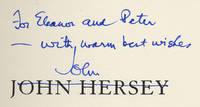 For Eleanor and Peter
— with warm best wishes
John
JOHN HERSEY